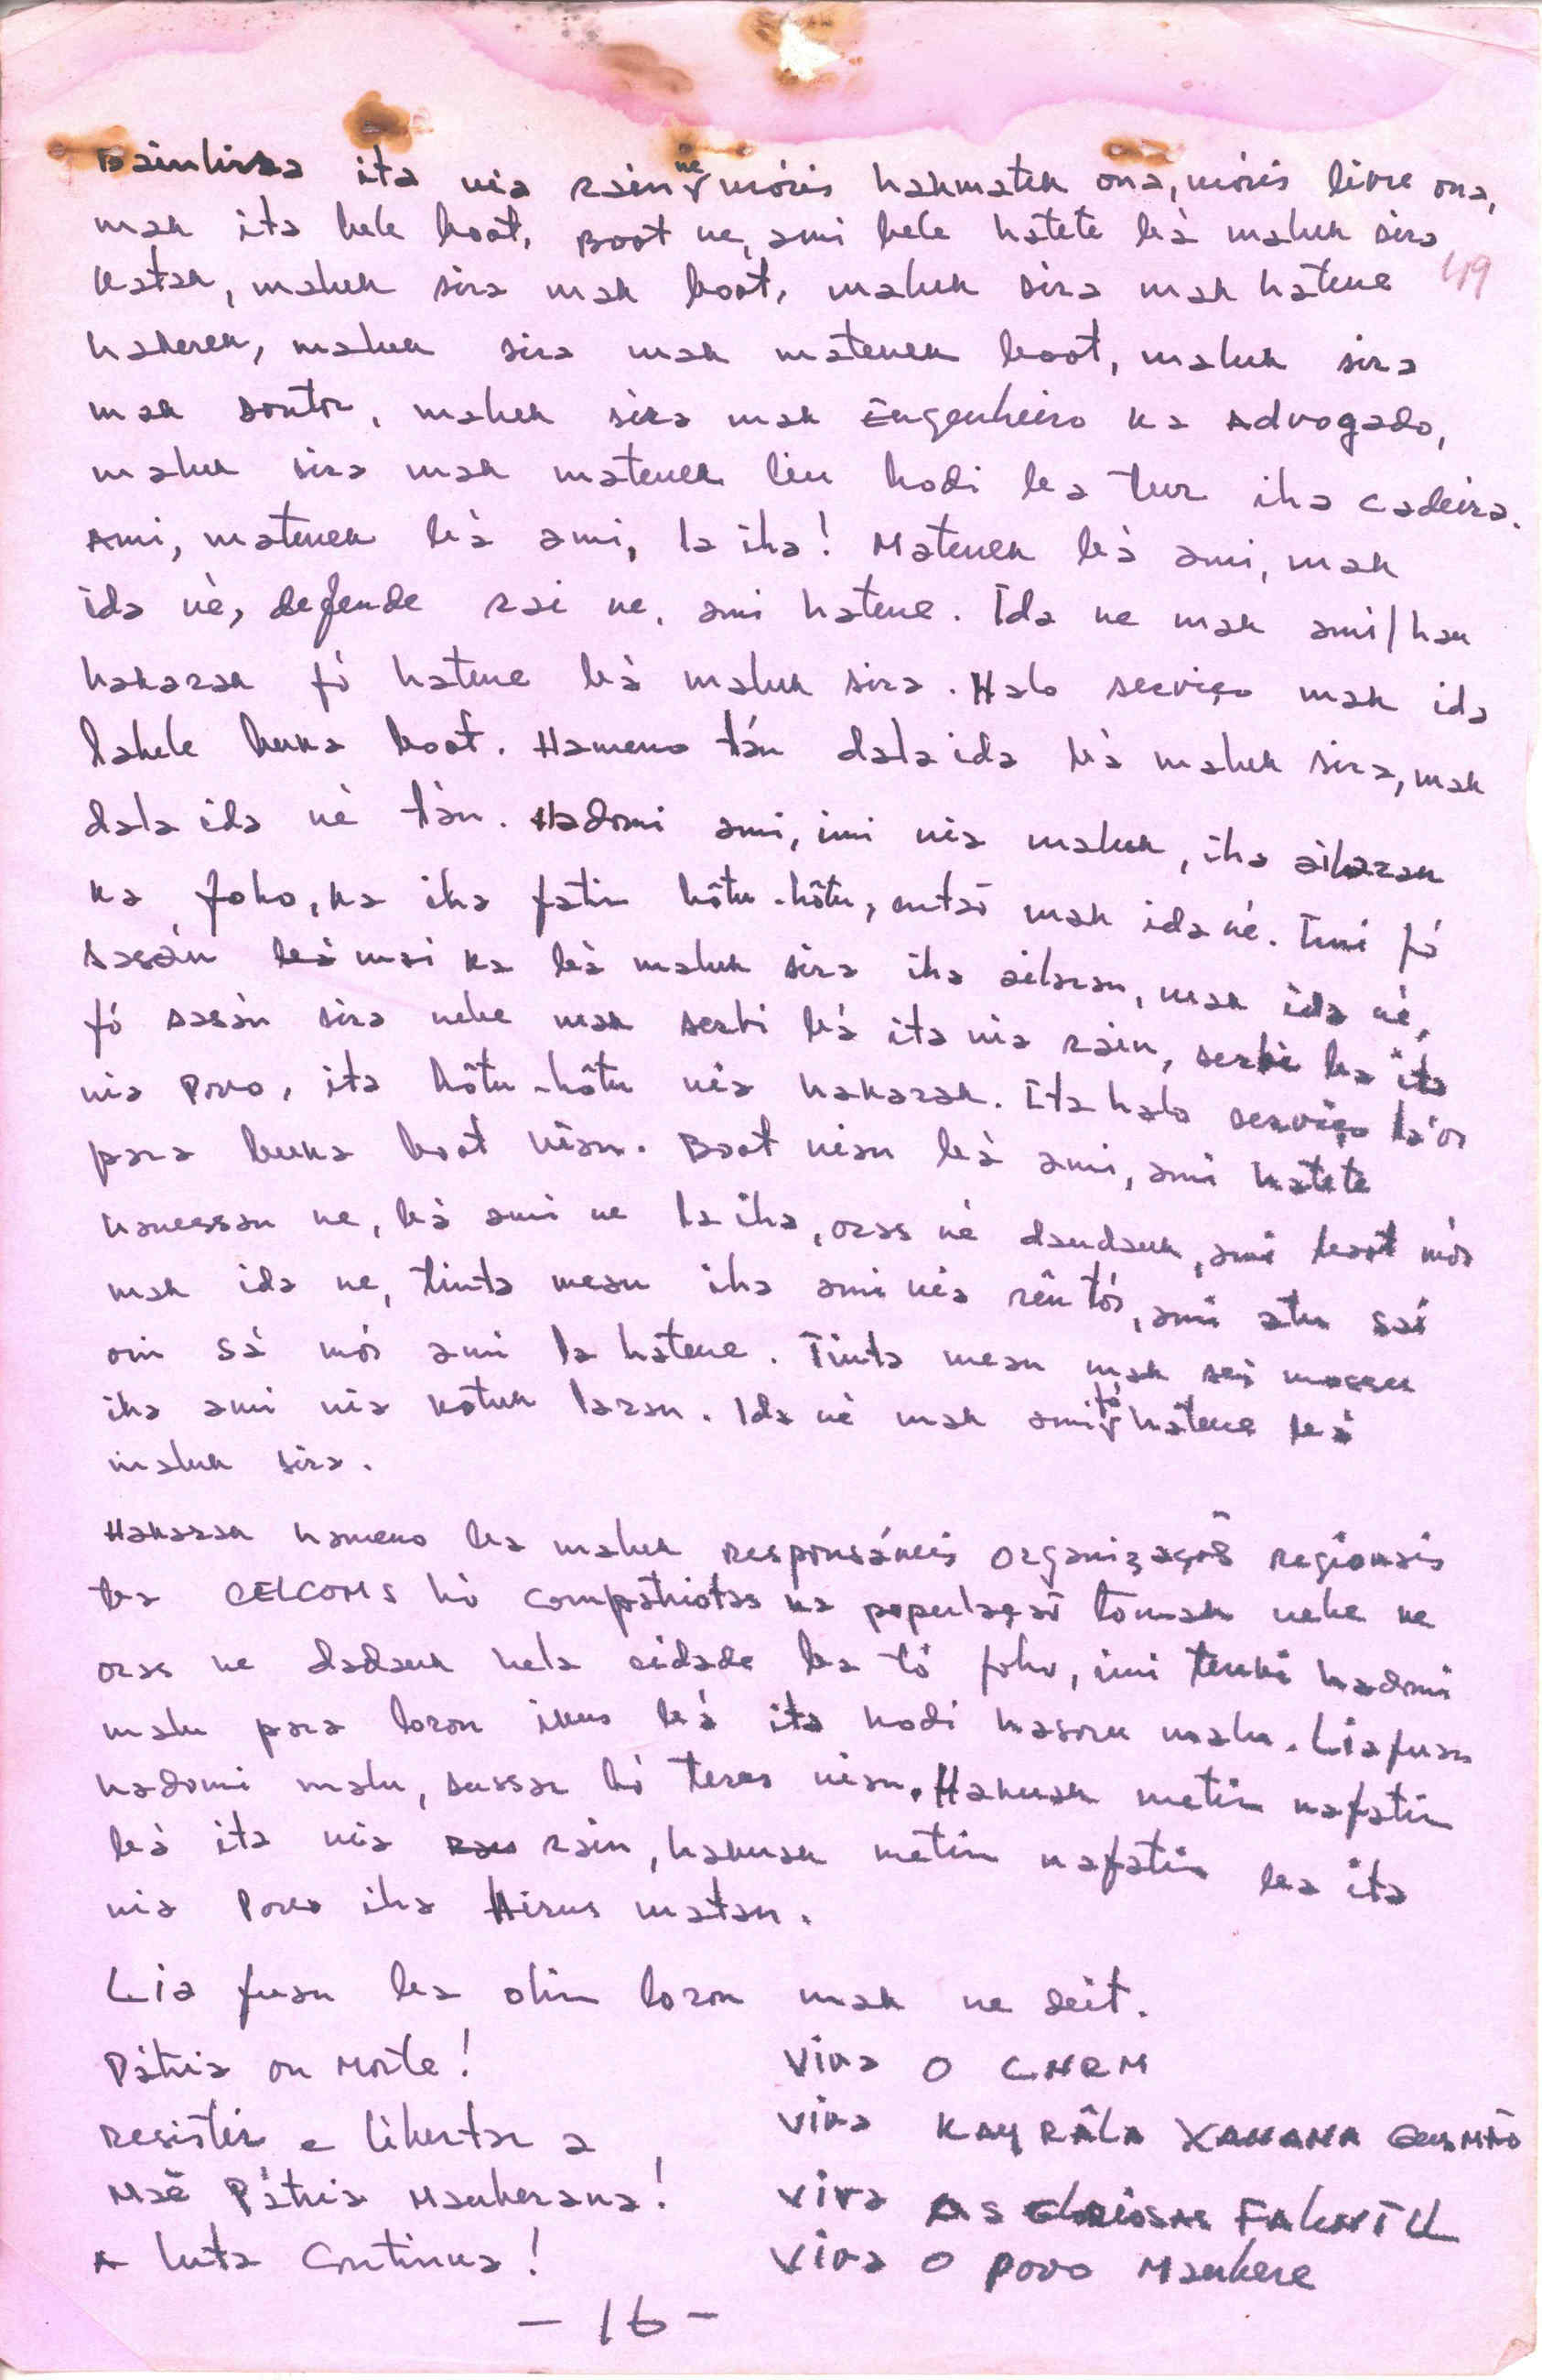 Bainhira ita nia rain ne moris hakmatek ona, moris livre ona,
mak ita bele boot. Boot ne, ami bele hatete bá maluk sira
katak, maluk sira mak boot, maluk sira mak hatene
49
hakerek, maluk sira mak matenek boot, maluk sira
mak doutor, maluk sira mak Engenheiro ka Advogado,
maluk sira mak matenek liu hodi ba tur iha cadeira.
Ami, matenek bá ami, la iha! Matenek bá ami, mak
ida né, defende rai ne, ami hatene. Ida ne mak ami/hau
hakarak fó hatene bá maluk sira. Halo serviço mak ida
labele buka boot. Hameno tán dala ida bá maluk sira, mak
dala ida né tán. Hadomi ami, imi nia maluk, iha ailaran
ka foho, ka iha fatin hôtu-hôtu, entaõ mak ida né. Imi fó
sasán bá mai ka bá maluk sira iha ailaran, mak ida né,
fó sasán sira nebe mak serbi bá ita nia rain, serbi ba ita
nia Povo, ita hôtu-hôtu nia hakarak. Ita halo serviço lá'os
para buka boot nian. Boot nian bá ami, ami hatete
hanessan ne, bá ami ne la iha, oras né daudauk, ami boot mós
mak ida ne, tinta mean iha ami nia rentós, ami atu sai
oin sá mós ami la hatene. Tinta mean mak sei mossu
iha ami nia kotuk laran. Ida né mak ami fó hatene bá
maluk sira.
Hakarak hameno ba maluk responsáveis organizaçõs regionais
ba CELCOMS hó compatriotas ka populaçaõ tomak nebe ne
oras ne dadauk hela cidade ba tó foho, imi tenki hadomi
malu para loron ikus bá ita hodi hasoru malu. Liafuan
hadomi malu, sussar hó teres nian. Hakuak metin nafatin
bá ita nia rain, hakuak metin nafatin ba ita
nia Povo iha Hirus matan.
Lia fuan ba ohin loron mak ne deit.
Pátria ou Morte!
Viva O CNRM
Resistir e libertar a
Viva KAY RÂLA XANANA GUSMÃO
Maẽ Pátria Mauberana!
Viva AS GLORIOSAS FALINTIL
A luta Continua!
Viva O Povo Maubere
- 16 -